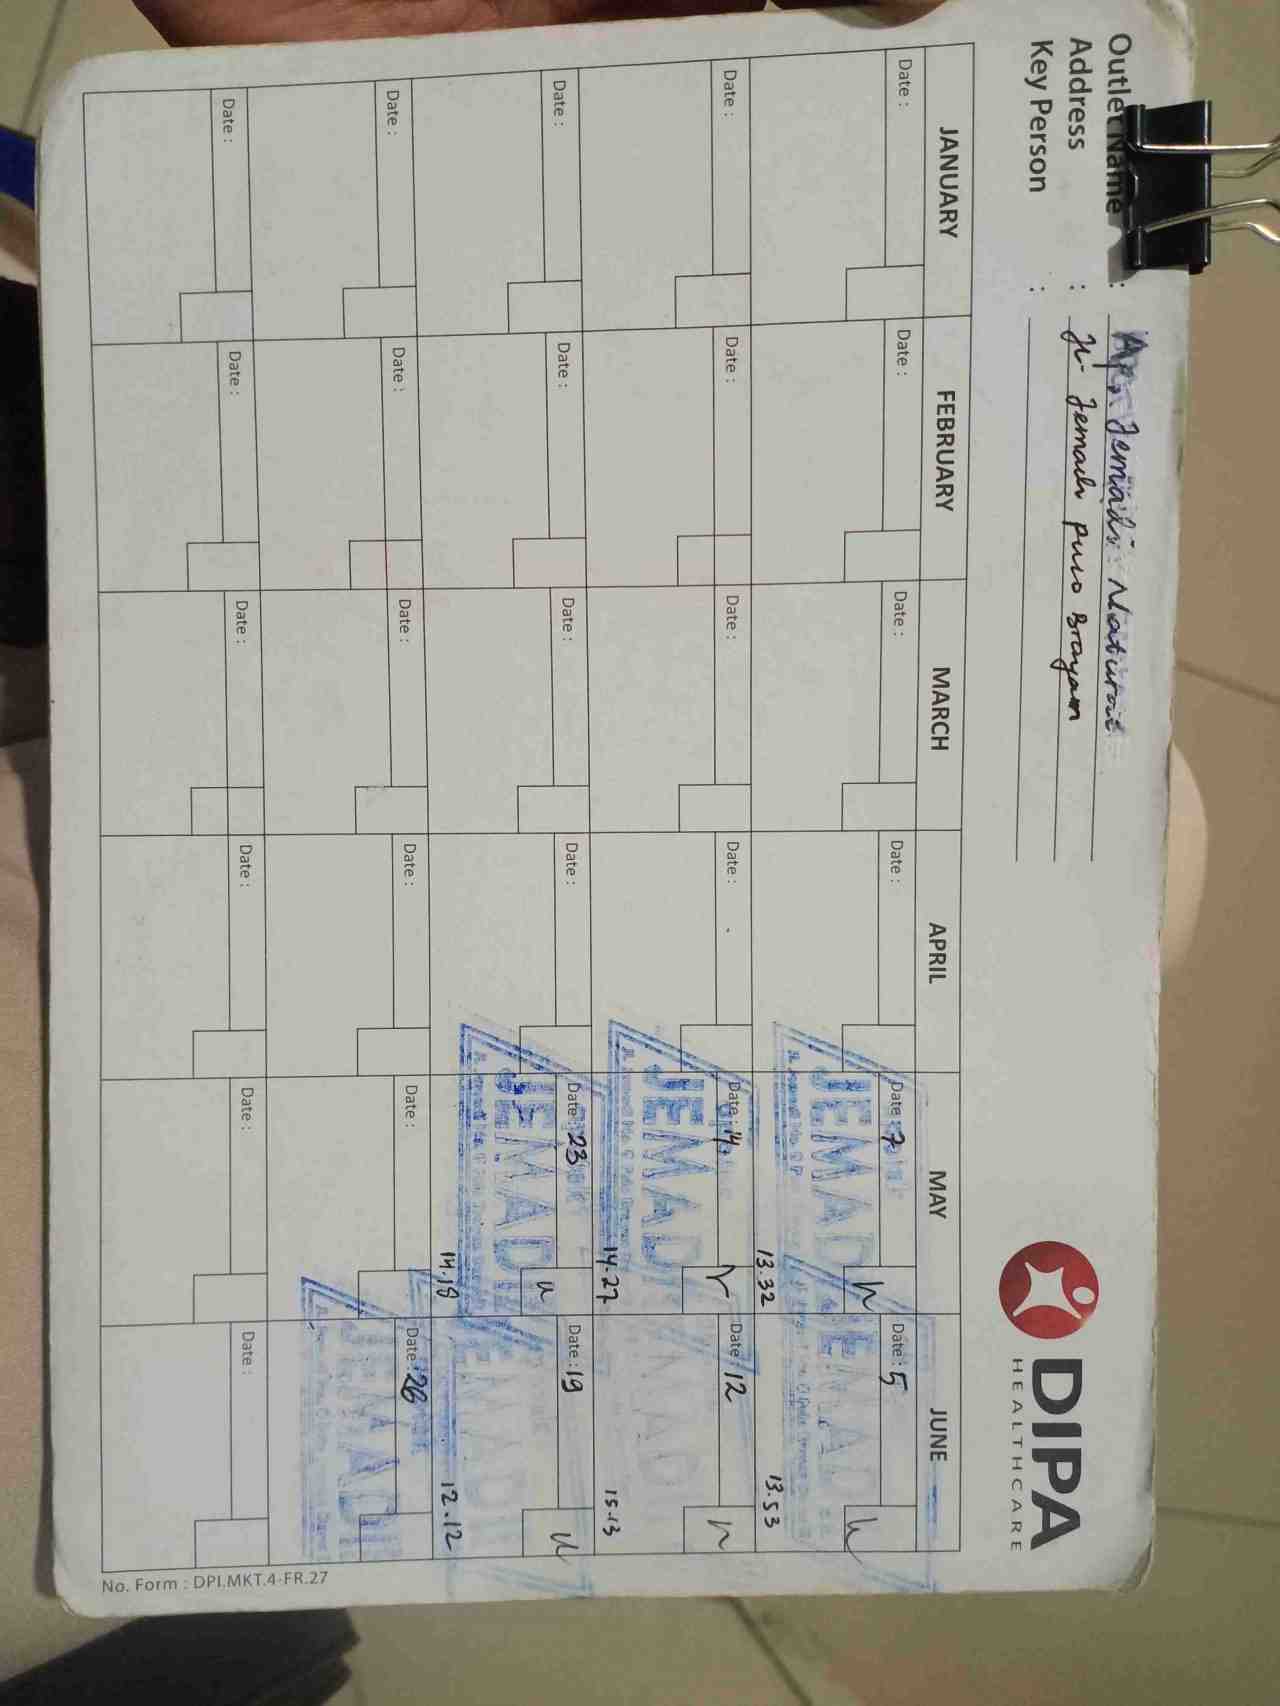 DIPA
HEALTHCARE
Outlet Name : Ap. Jemadi
Address : Jl. Jemadi Pulo Brayan
Key Person :
JANUARY FEBRUARY MARCH APRIL MAY JUNE
Date : Date : Date : Date : Date : 7 Date : 5
JEMADI JEMADI
13.32 13.53
Date : Date : Date : Date : Date : 14 Date : 12
JEMADI JEMADI
14.27 15.13
Date : Date : Date : Date : Date : 23 Date : 19
JEMADI JEMADI
14.18 12.12
Date : Date : Date : Date : Date : Date : 26
JEMADI
Date : Date : Date : Date : Date : Date :
No. Form : DPI.MKT.4-FR.27